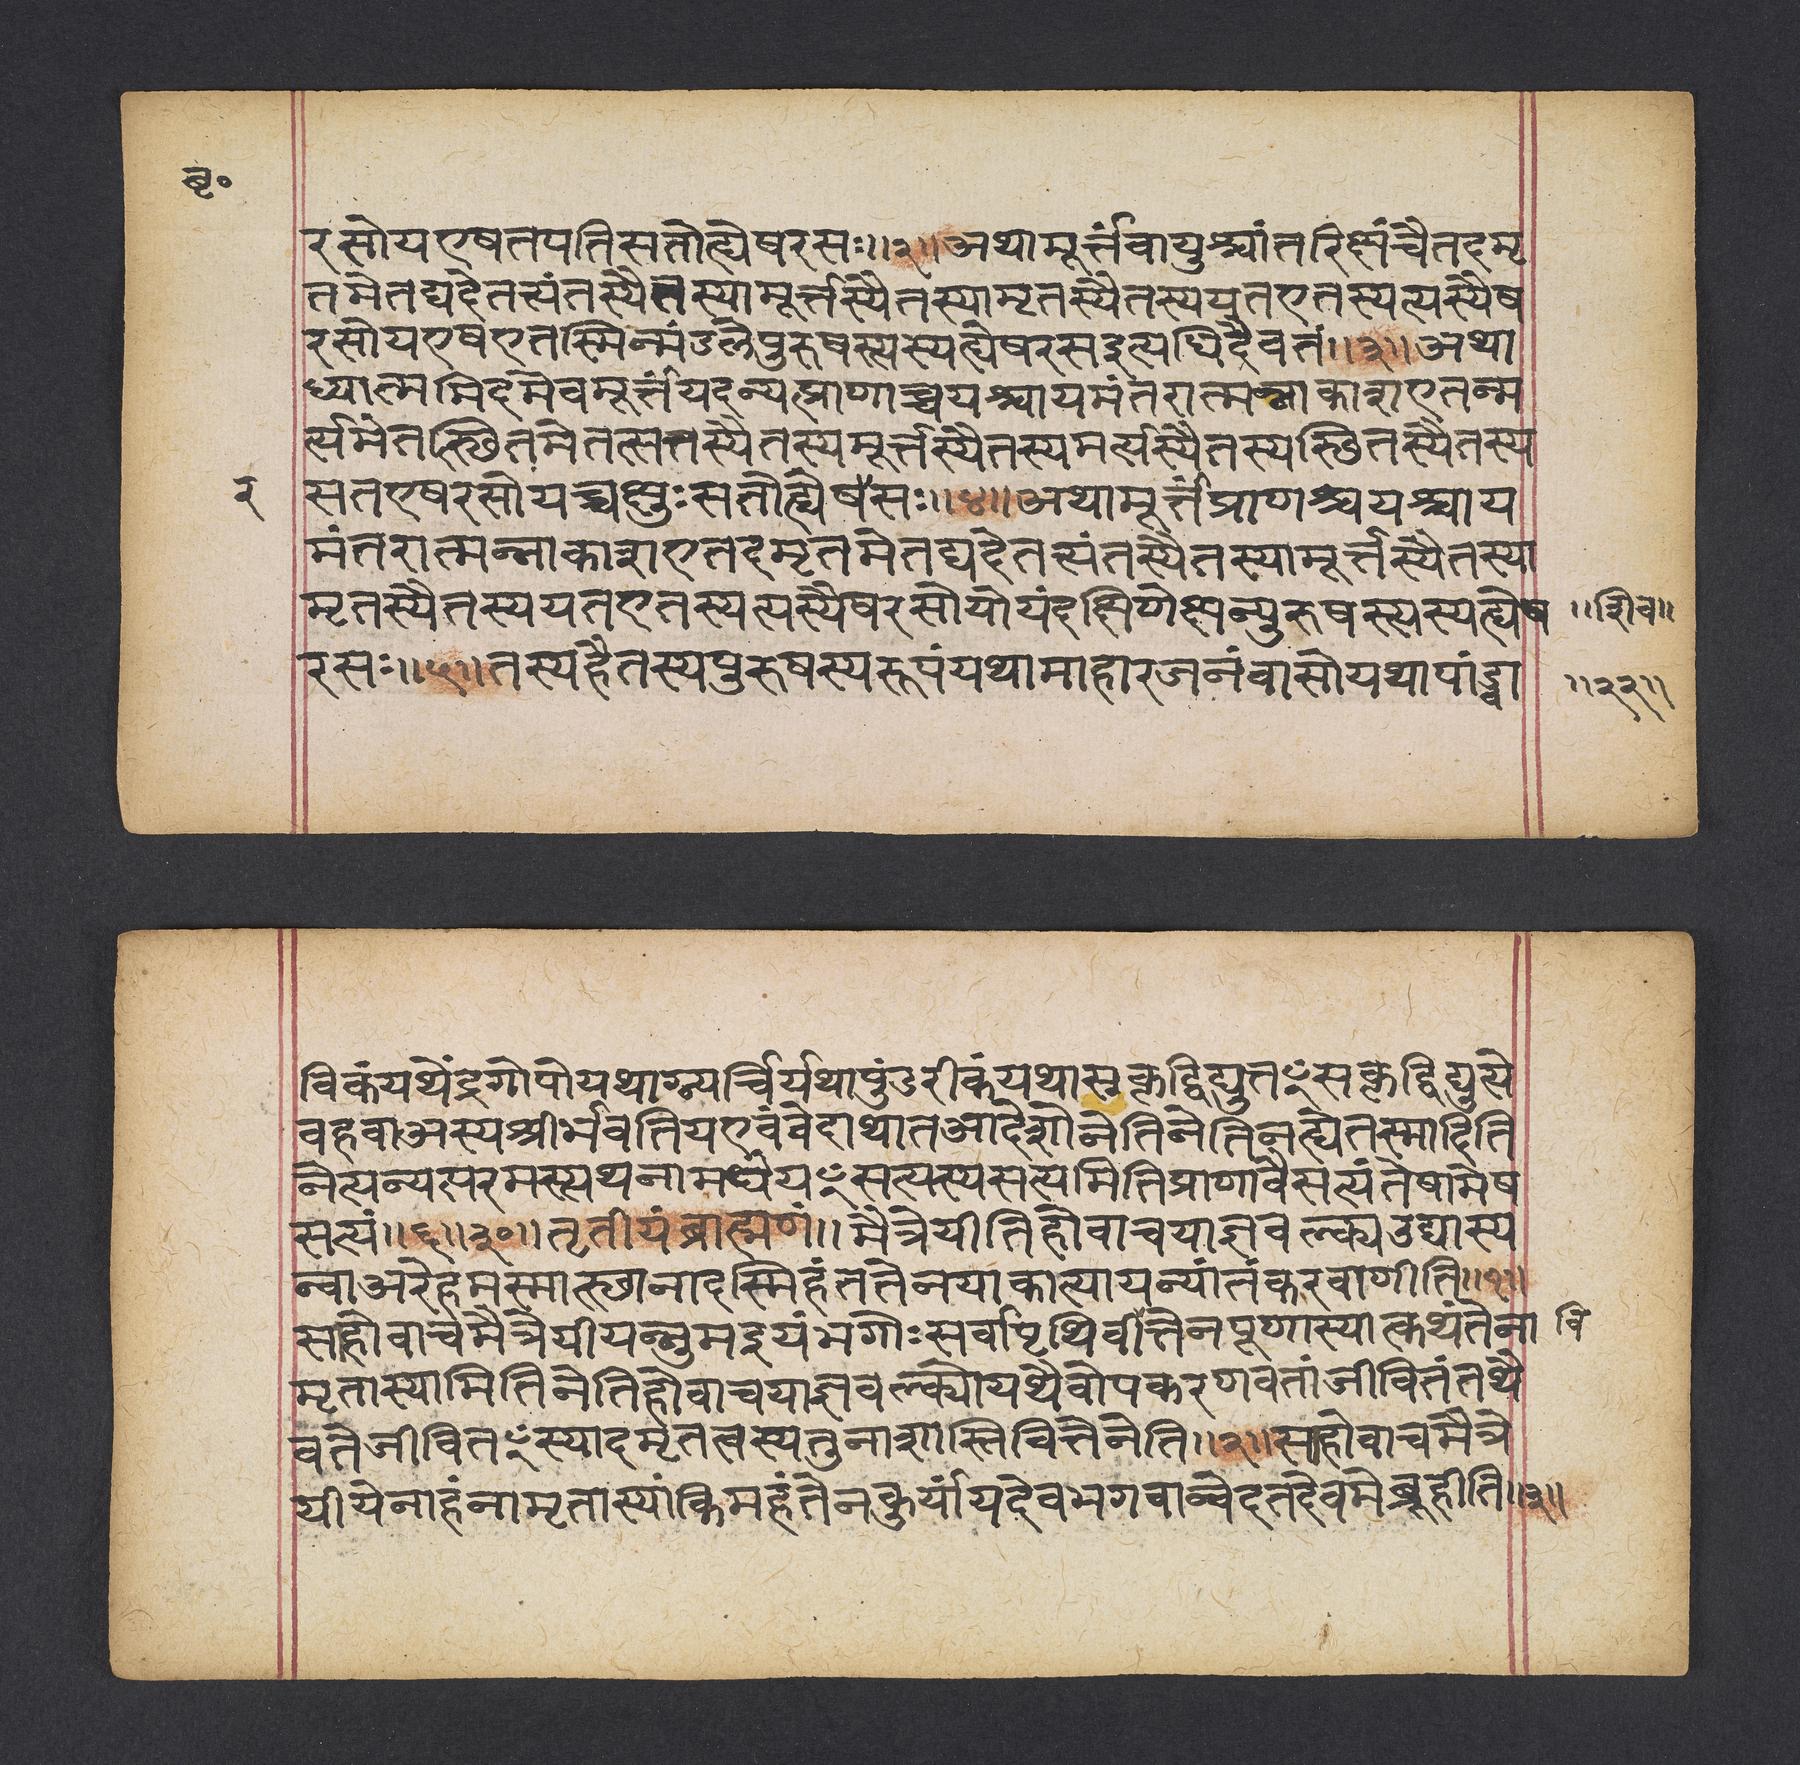 बृ॰
रसोयएषतपतिसतोह्येषरसः॥२॥अथामूर्त्तंवायुश्चांतरिक्षंचैतदमृ
तमेतद्यदेतत्त्यंतस्यैतस्यामूर्त्तस्यैतस्यामृतस्यैतस्ययतएतस्यत्यस्यैष
रसोयएषएतस्मिन्मंडलेपुरुषस्त्यस्यह्येषरसइत्यधिदैवतं॥३॥अथा
ध्यात्ममिदमेवमूर्त्तंयदन्यत्प्राणाच्चयश्चायमंतरात्मन्नाकाशएतन्म
र्त्यमेतत्स्थितमेतत्सत्तस्यैतस्यमूर्त्तस्यैतस्यमर्त्यस्यैतस्यस्थितस्यैतस्य
र
सतएषरसोयच्चक्षुःसतोह्येषसः॥४॥अथामूर्त्तंप्राणश्चयश्चाय
मंतरात्मन्नाकाशएतदमृतमेतद्यदेतत्त्यंतस्यैतस्यामूर्त्तस्यैतस्या
मृतस्यैतस्ययतएतस्यत्यस्यैषरसोयोयंदक्षिणेक्षन्पुरुषस्त्यस्यह्येष
॥शिव॥
रसः॥५॥तस्यहैतस्यपुरुषस्यरूपंयथामाहारजनंवासोयथापांड्वा
॥२२॥
विकंयथेंद्रगोपोयथाग्न्यर्च्चिर्यथापुंडरीकंयथासकृद्विद्युत्तꣳसकृद्विद्युत्ते
वहवाअस्यश्रीर्भवतियएवंवेदाथातआदेशोनेतिनेतिनह्येतस्मादिति
नेत्यन्यत्परमस्त्यथनामधेयꣳसत्यस्यसत्यमितिप्राणावैसत्यंतेषामेष
सत्यं॥६॥३०॥तृतीयंब्राह्मणं॥मैत्रेयीतिहोवाचयाज्ञवल्क्यउद्यास्य
न्वाअरेहमस्मात्स्थानादस्मिहंततेनयाकात्यायन्यांतंकरवाणीति॥१॥
साहोवाचमैत्रेयीयन्नुमइयंभगोःसर्वापृथिवीत्तेनपूर्णास्यात्कथंतेना
वि
मृतास्यामितिनेतिहोवाचयाज्ञवल्क्योयथैवोपकरणवतांजीवितंतथै
वतेजीवितꣳस्यादमृतत्वस्यतुनाशास्तिवित्तेनेति॥२॥साहोवाचमैत्रे
यीयेनाहंनामृतास्यांकिमहंतेनकुर्यांयदेवभगवान्वेदतदेवमेब्रूहीति॥३॥